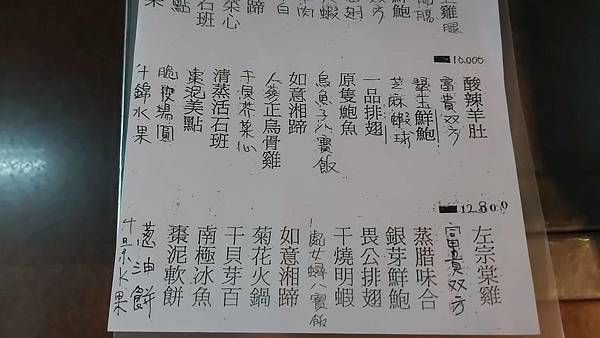 雞腿
鮮鮑
双方
蝦
蹄
菜心
石班
美點
水果
16,000
酸辣羊肚
富貴双方
鮮鮑
芝麻蝦球
一品排翅
原隻鮑魚
烏魚子八寶飯
如意湘蹄
人蔘正烏骨雞
干貝芥菜心
清蒸活石班
棗泥美點
脆皮湯圓
什錦水果
12,800
左宗棠雞
富貴双方
蒸腊味合
銀芽鮮鮑
畏公排翅
干燒明蝦
處女蟳八寶飯
如意湘蹄
菊花火鍋
干貝芽百
南極冰魚
棗泥軟餅
葱油餅
什景水果